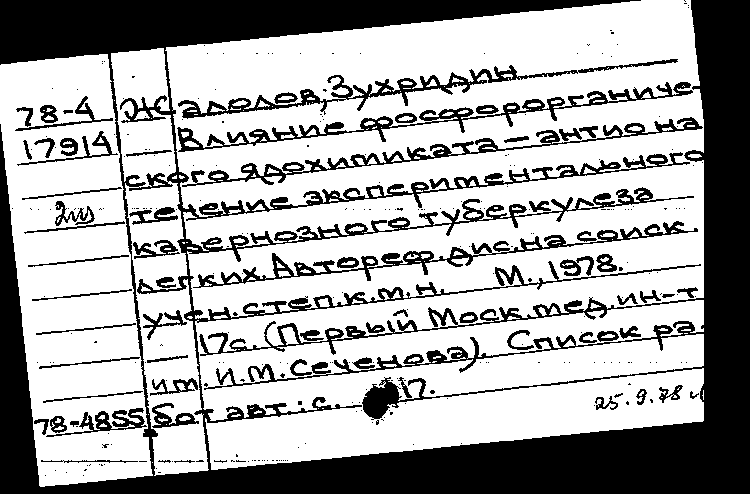 78-4 Жалолов, Зухридин
17914 Влияние фосфорорганиче-
ского ядохимиката — антио на
течение экспериментального
кавернозного туберкулеза
легких. Автореф. дис. на соиск.
учен. степ. к.м.н. М., 1978.
17с. (Первый Моск. мед. ин-т
им. И.М. Сеченова). Список ра-
78-4855 бот авт.: с. 17.
25.9.78